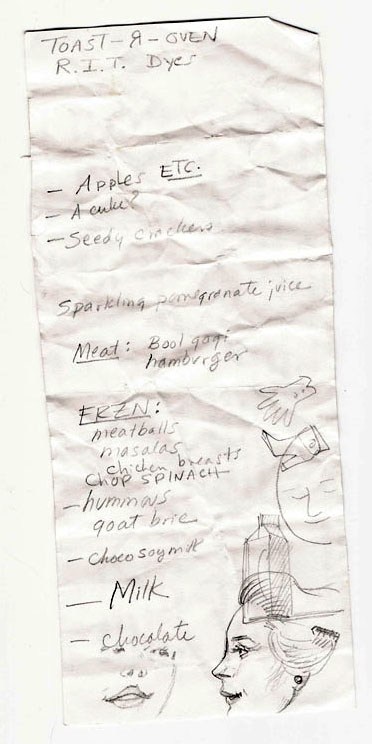 TOAST-Я-OVEN
R.I.T. Dyes
- Apples ETC.
- A cuke?
- Seedy crackers
Sparkling pomegranate juice
Meat: Bool gogi
hamburger
FRZN:
meatballs
masalas
chicken breasts
CHOP SPINACH
- hummous
goat brie
- Choco soymilk
- Milk
- chocolate